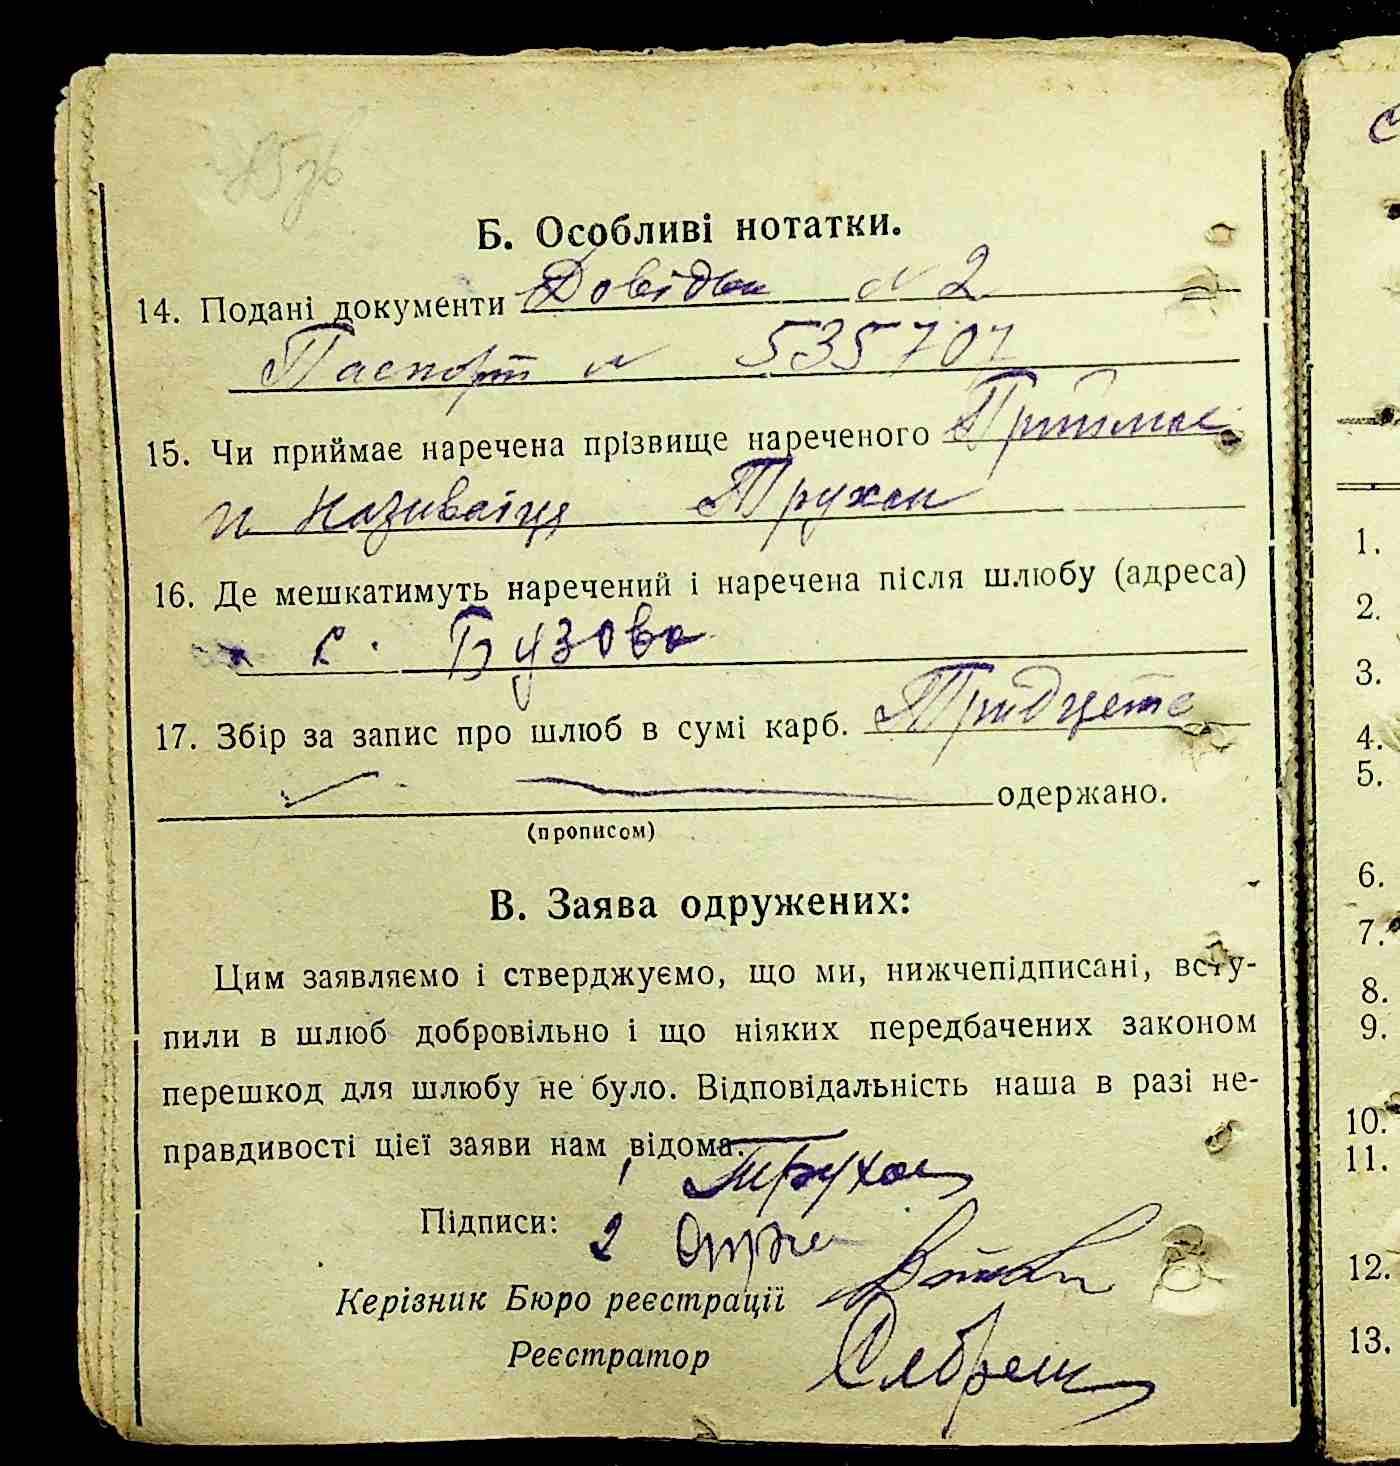 Б. Особливі нотатки.
14. Подані документи Довідка № 2
Паспорт № 535707
15. Чи приймає наречена прізвище нареченого Приймає
и Називаіця Трухан
16. Де мешкатимуть наречений і наречена після шлюбу (адреса)
с. Бузова
17. Збір за запис про шлюб в сумі карб. Тридцеть
одержано.
(прописом)
В. Заява одружених:
Цим заявляємо і стверджуємо, що ми, нижчепідписані, всту-
пили в шлюб добровільно і що ніяких передбачених законом
перешкод для шлюбу не було. Відповідальність наша в разі не-
правдивості цієї заяви нам відома.
1 Трухан
Підписи: 2
Керізник Бюро реєстрації
Реєстратор
1.
2.
3.
4.
5.
6.
7.
8.
9.
10.
11.
12.
13.